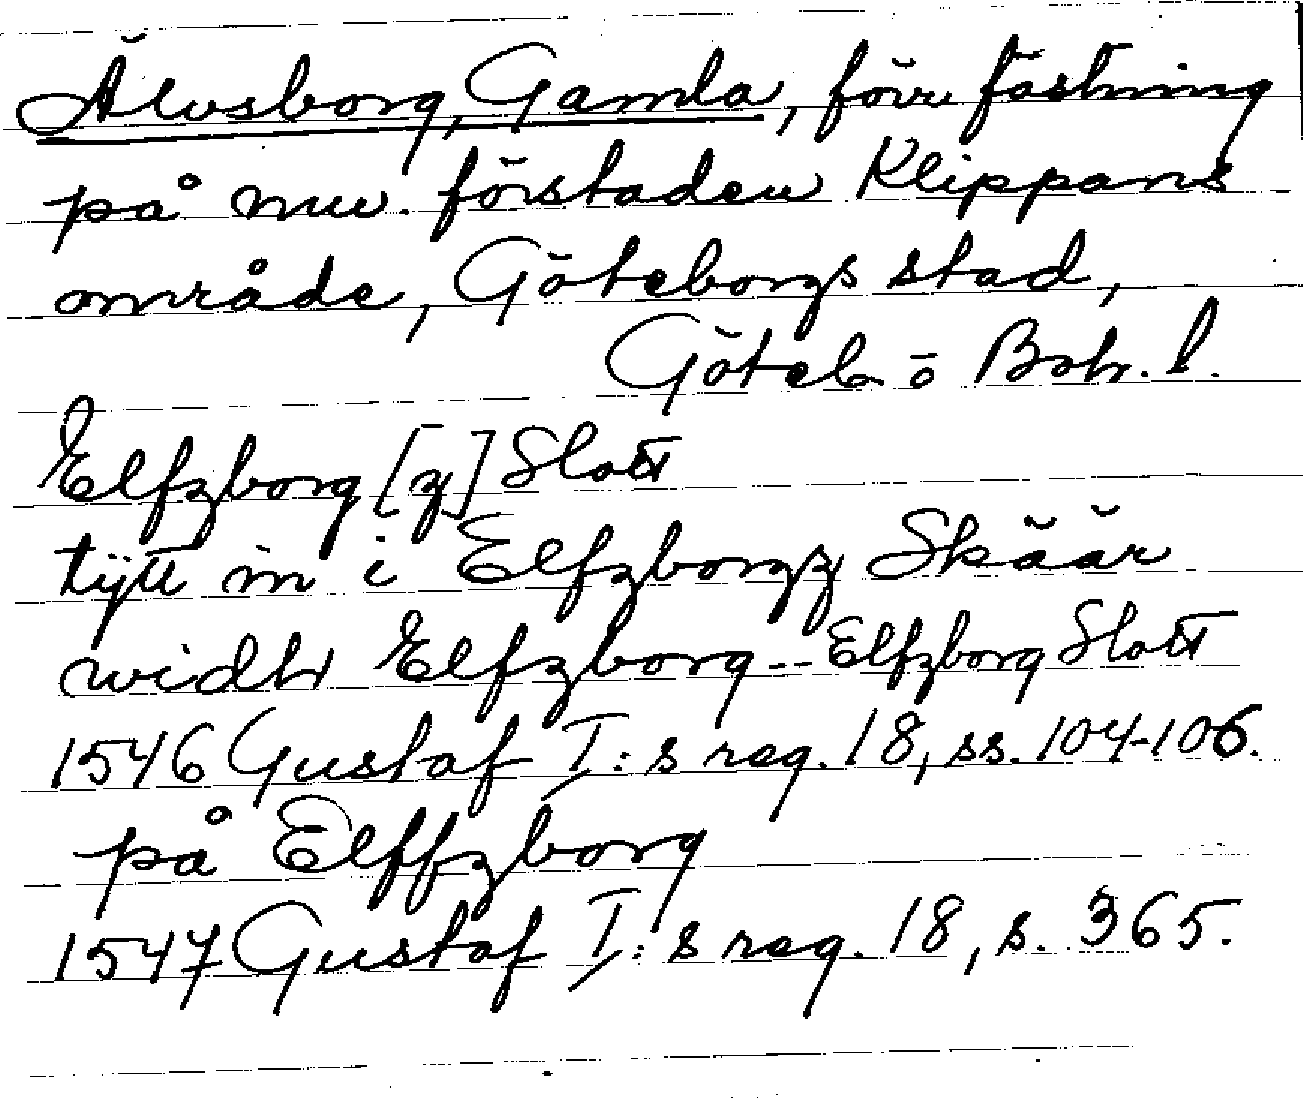 Älvsborg, Gamla, förr fästning
på nuv. förstaden Klippans
område, Göteborgs stad,
Göteb. o Boh. l.
Elfzborg [z] Slott
tijtt in i Elfzborgz Skäär
widh Elfzborg -- Elfzborg Slott
1546 Gustaf I:s reg. 18, ss. 104-106.
på Elffzborg
1547 Gustaf I:s reg. 18, s. 365.